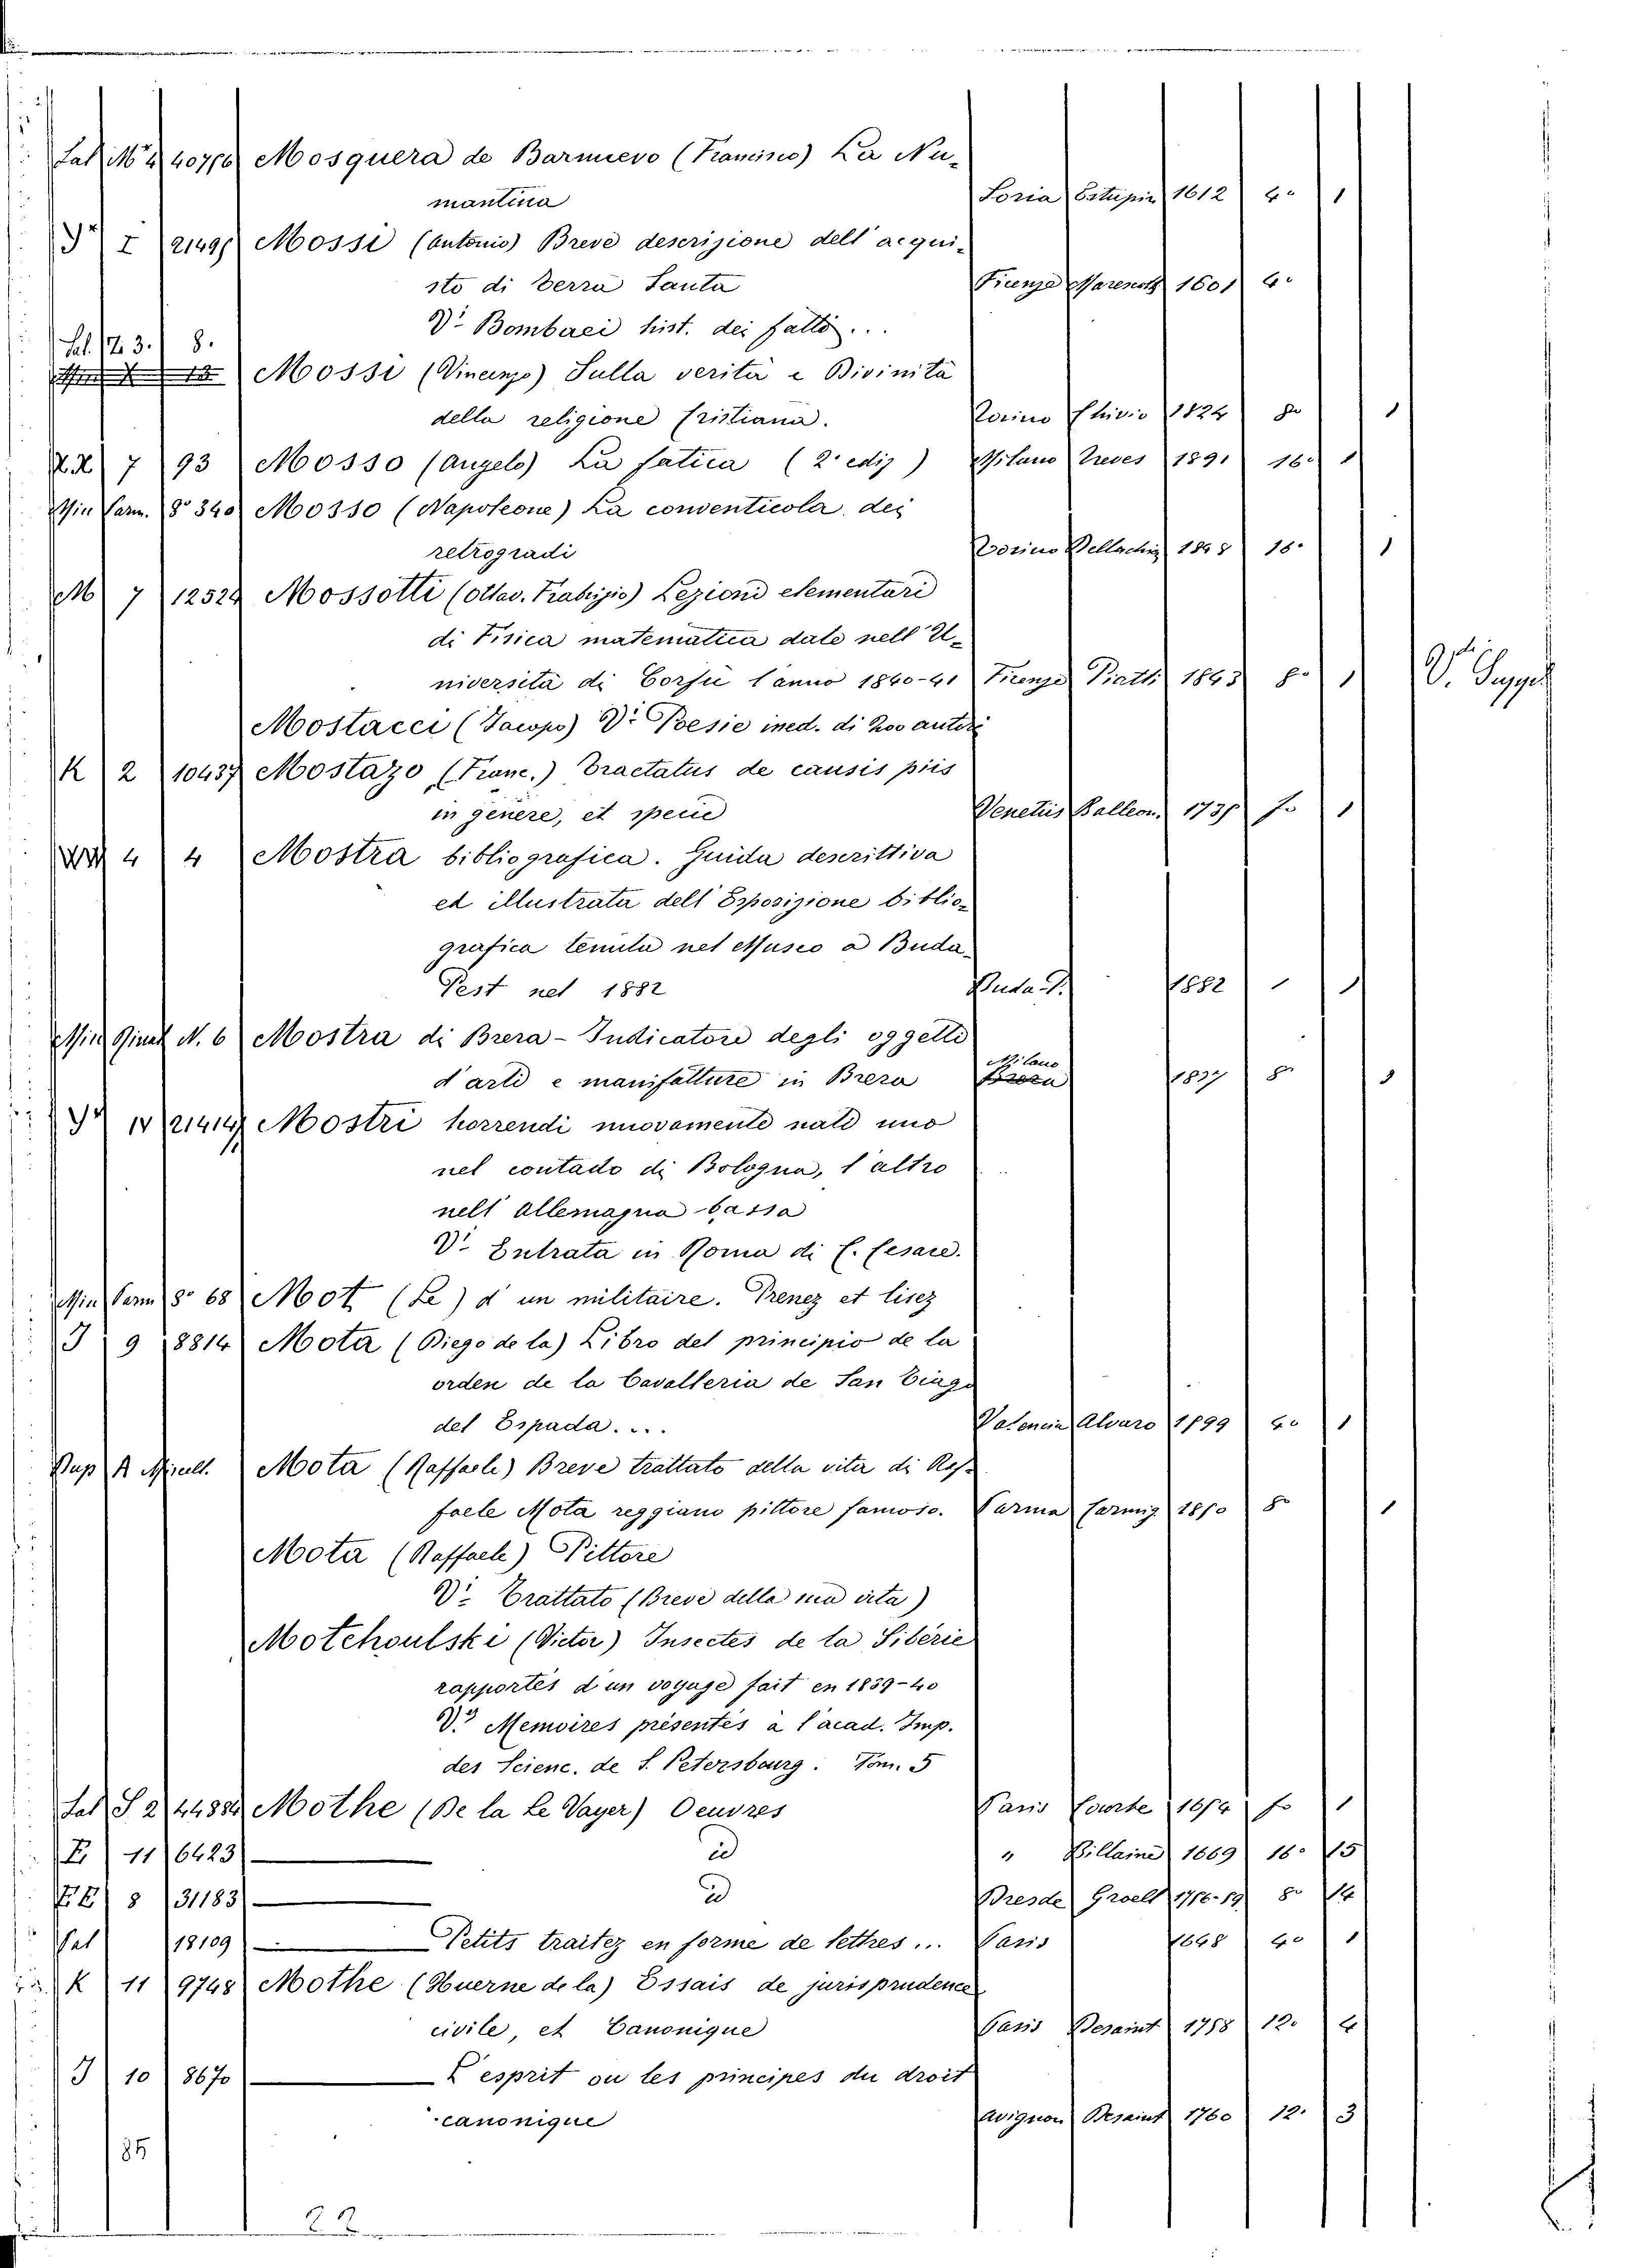 Sal. M. 4 40776 Mosquera de Barnuevo (Francisco) La Nu-
mantina Soria Estupin 1612 4° 1
I 21491 Mossi (Antonio) Breve descrizione dell' acqui-
sto di Terra Santa Firenze Marescotti 1601 4°
Vi Bombaci hist. dei fatti...
Sal. Z. 3. 8.
Mossi (Vincenzo) Sulla verità e Divinità
della religione Cristiana. Torino Chirio 1824 8° 1
7 93 Mosso (Angelo) La fatica (2ª ediz) Milano Treves 1891 16° 1
Min Parm. 8° 340 Mosso (Napoleone) La conventicola dei
retrogradi Torino 1848 16° 1
M 7 12524 Mossotti (Ottav. Fabrizio) Lezioni elementari
di Fisica matematica date nell' U-
niversità di Corfù l'anno 1840-41 Firenze Piatti 1843 8° 1
Mostacci (Jacopo) Vi Poesie ined. di 200 autori
K 2 10437 Mostazo (Franc.) Tractatus de causis piis
in genere, et specie Venetiis Balleon. 1735 f° 1
4 4 Mostra bibliografica. Guida descrittiva
ed illustrata dell' Esposizione biblio-
grafica tenuta nel Museo a Buda-
Pest nel 1882 Buda P. 1882 1
Min N. 6 Mostra di Brera - Indicatore degli oggetti
Milano
d'arti e manifatture in Brera Brera 1837 8° 1
IV 21414 Mostri horrendi nuovamente nati uno
nel contado di Bologna, l'altro
nell' Allemagna bassa
Vi Entrata in Roma di C. Cesare.
Min Parm 8° 68 Mot (Le) d'un militaire. Prenez et lisez
J 9 8814 Mota (Diego de la) Libro del principio de la
orden de la Cavalleria de San Tiago
del Espada.... Valencia Alvaro 1599 4° 1
Mota (Raffaele) Breve trattato della vita di Raf-
faele Mota reggiano pittore famoso. Parma Carmig 1850 8° 1
Mota (Raffaele) Pittore
Vi Trattato (Breve della sua vita)
Motchoulski (Victor) Insectes de la Sibérie
rapportés d'un voyage fait en 1839-40
V° Memoires présentés à l'acad. Imp.
des Scienc. de S. Petersbourg. Tom. 5
Sal S 2 44584 Mothe (De la Le Vayer) Oeuvres Paris Courbe 1654 f° 1
E 11 6423 id " Billaine 1669 16° 15
8 31183 id Dresde Groell 1756-59 8° 14
Pal 18109 Petits traitez en forme de lettres... Paris 1648 4° 1
K 11 9748 Mothe (Huerne de la) Essais de jurisprudence
civile, et Canonique Paris Desaint 1758 12° 4
J 10 8670 L'esprit ou les principes du droit
canonique Avignon Desaint 1760 12° 3
85
22